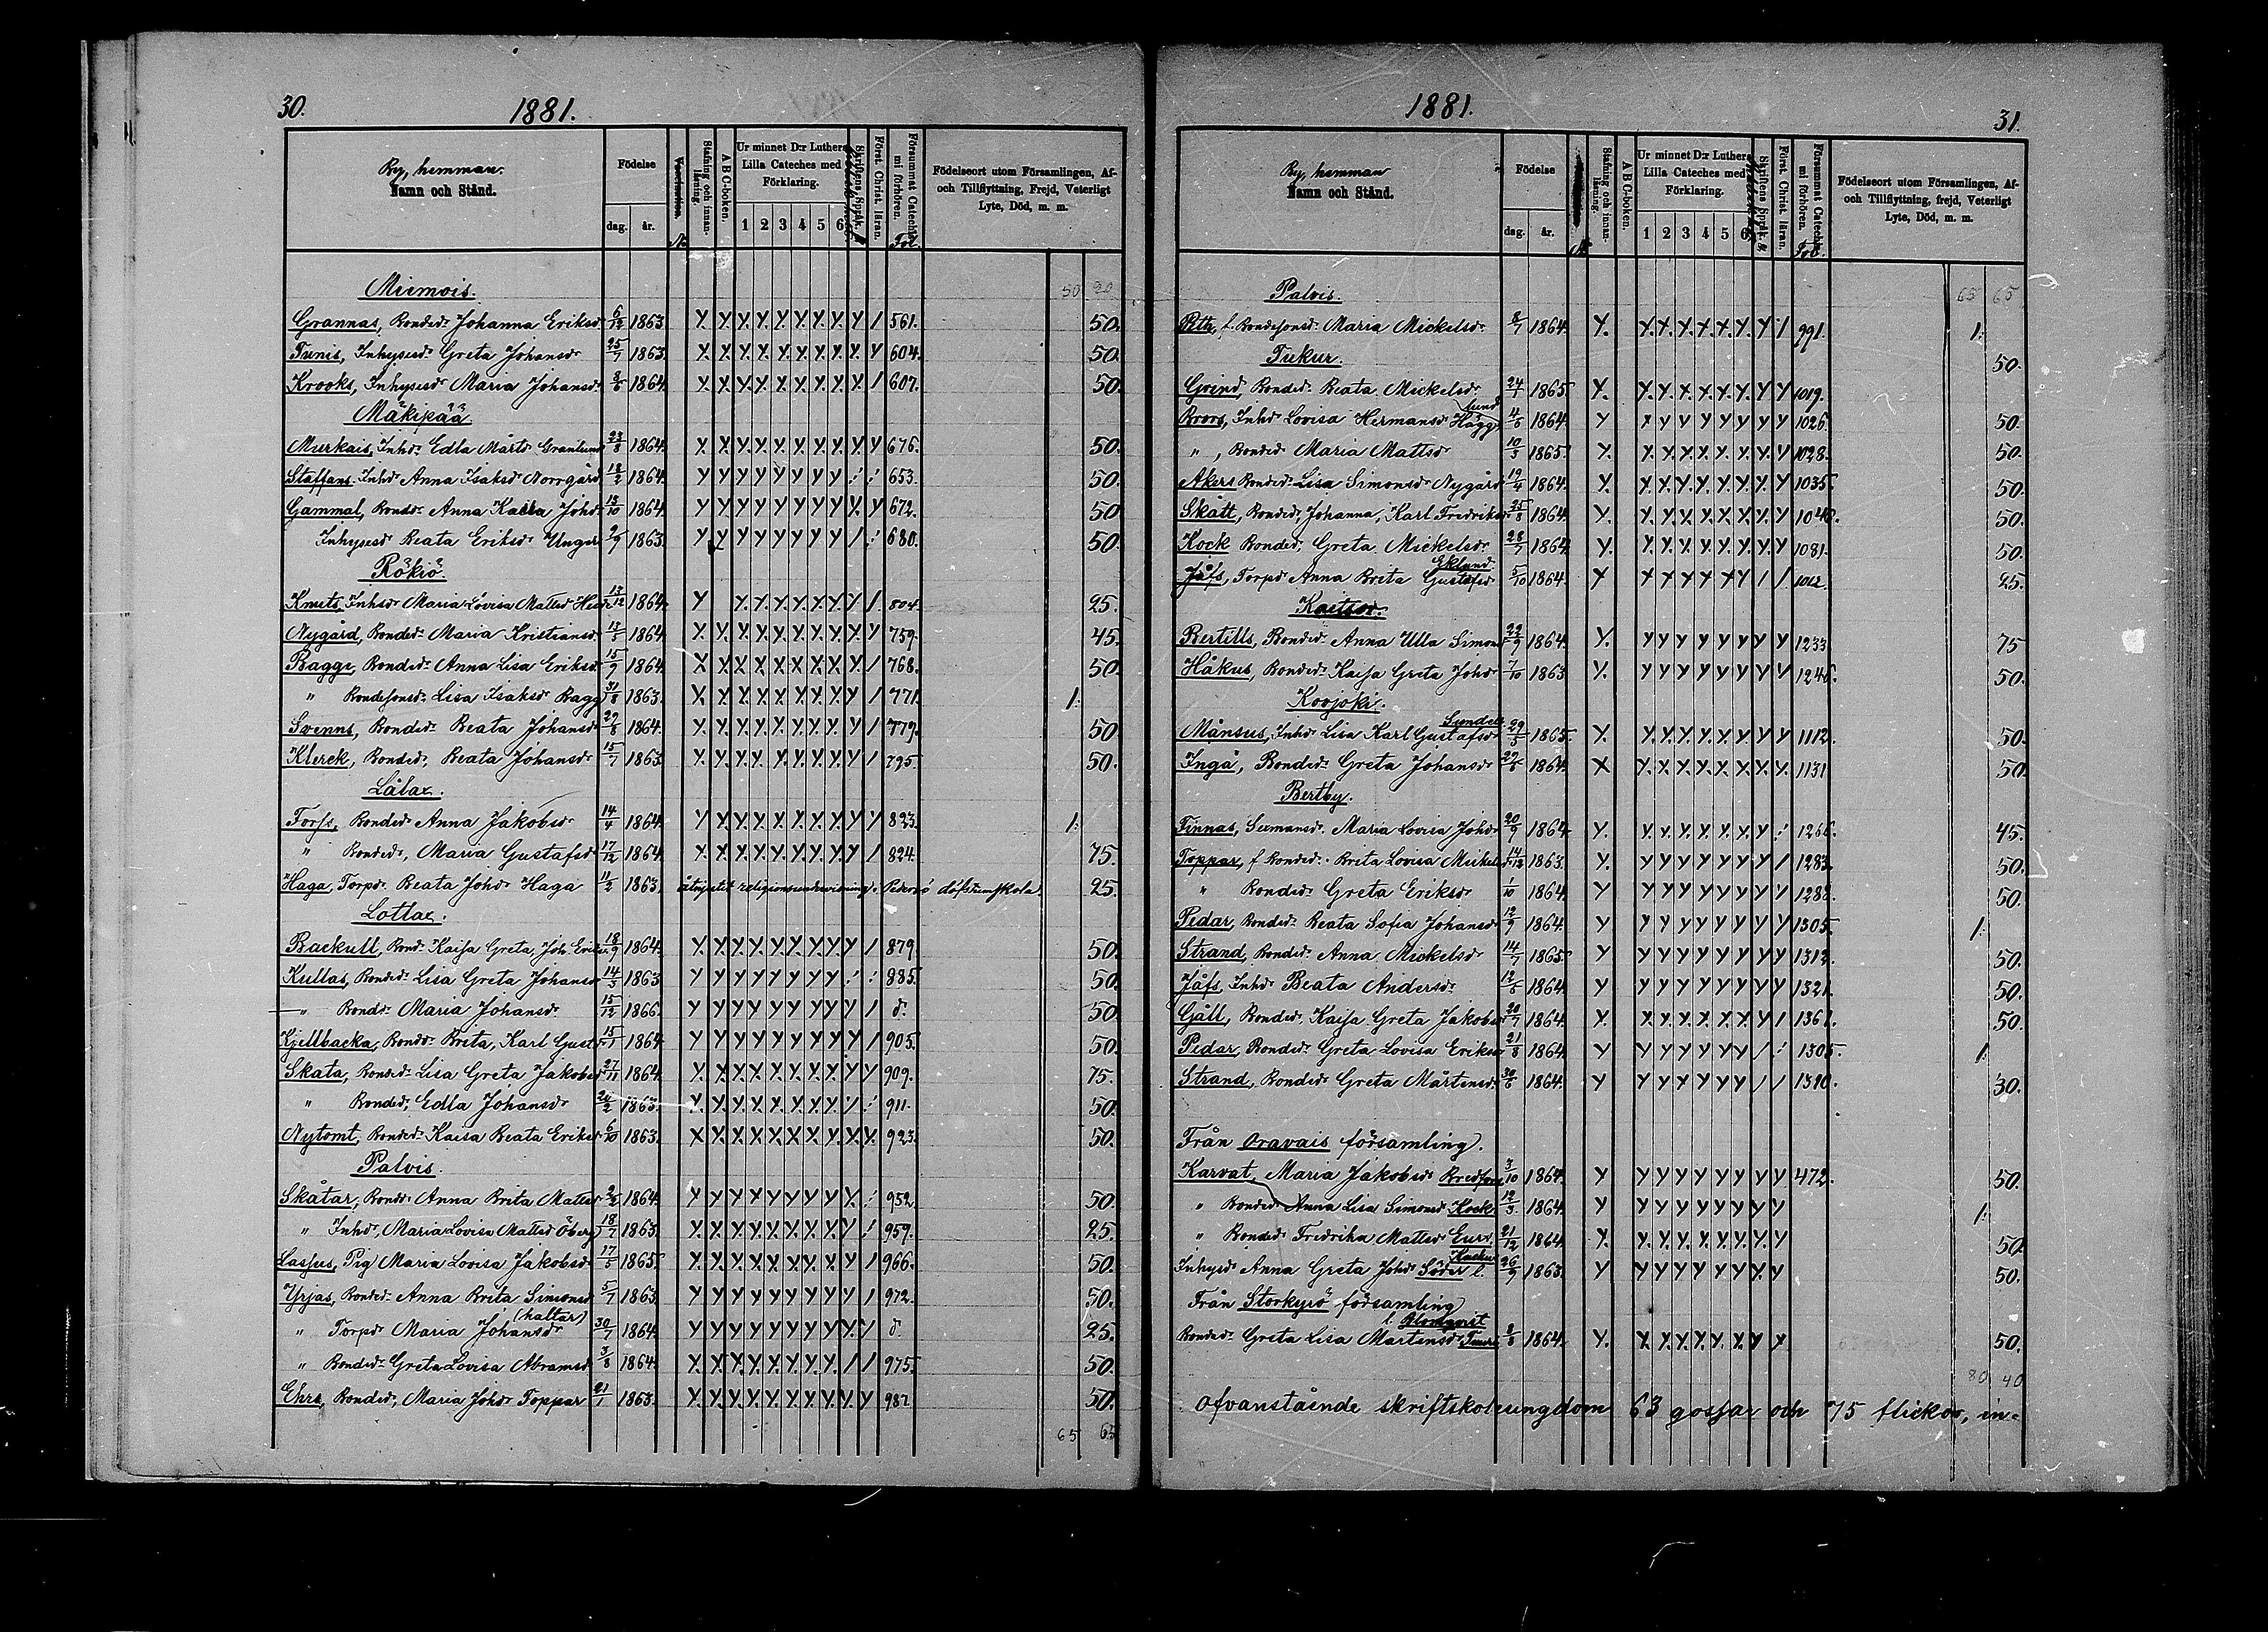 30. 1881.
By, hemman.
Namn och Stånd.
Födelse
dag. år.
Vaccination.
No
Stafning och innanläsning.
A B C-boken.
Ur minnet D:r Luthers Lilla Cateches med Förklaring.
1 2 3 4 5 6
Skriftens Språk.
Först. Christ. läran.
Försummat Catechismiförhören.
Fol.
Födelseort utom Församlingen, Af- och Tillflyttning, Frejd, Veterligt Lyte, Död, m. m.
Miemois. 50 20
Grannas, Bonded:r Johanna Eriksdr 6/12 1863 Y. Y. Y. Y. Y. Y. Y. Y. Y / 561. 50.
Tunis, Inhysesdr Greta Johansdr 25/7 1863. Y. Y. Y. Y. Y. Y. Y. Y. Y. Y 604. 50.
Krooks, Inhysesdr Maria Johansdr 8/6 1864. Y. Y. Y. Y. Y. Y. Y. Y. Y. / 607. 50.
Mäkipää
Murkais, Inhdr Edla Mårtsdr Granlund 23/8 1864. Y. Y. Y. Y. Y. Y. Y. Y. Y Y 676. 50.
Staffans. Inhdr Anna Isaksdr Norrgård 18/2 1864. Y Y Y Y Y Y Y Y 653. 50.
Gammal, Bondedr Anna Kaisa Johdr 13/10 1864. Y Y Y Y Y Y Y Y Y. Y 672. 50
Inhysesdr Beata Eriksdr Unger 2/9 1863. Y Y Y Y Y Y Y Y / 680. 50.
Rökiö.
Knuts, Inhdr Maria Lovisa Mattsdr 13/12 1864. Y Y. Y. Y. Y. Y. Y. Y / 804. 25.
Nygård, Bonded:r Maria Kristiansdr 13/5 1864. Y. Y. Y. Y. Y. Y. Y. Y. Y. Y 759. 45.
Bagge, Bonded:r Anna Lisa Eriksdr 15/9 1864. Y Y Y Y Y Y Y Y Y. / 768. 50.
" Bondesonsdr Lisa Isaksdr Bagge 31/8 1863. Y. Y. Y. Y. Y. Y. Y. Y. Y / 771. 1:
Svenns, Bondedr Beata Johansdr 29/8 1864. Y. Y. Y. Y. Y. Y. Y. Y. Y / 779. 50
Klerck, Bondedr Beata Johansdr 15/7 1863. Y. Y. Y. Y. Y. Y. Y. Y. Y / 795. 50.
Lålax.
Forss, Bondedr Anna Jakobsdr 14/4 1864. Y Y. Y. Y. Y. Y. Y. Y. Y Y 823. 1:
" Bondedr, Maria Gustafsdr 17/12 1864. Y. Y. Y. Y. Y. Y. Y. Y. Y / 824. 75.
Haga, Torpdr Beata Johdr Haga 11/2 1863. åtnjutit religionsundervisning i Pedersö döfstumskola. 25.
Lottax.
Backull, Bonddr Kaisa Greta, Joh Eriks 18/9 1864. Y. Y. Y. Y. Y. Y. Y. Y. Y / 879. 50.
Kullas, Bondedr Lisa Greta Johansdr 14/3 1863 Y Y Y Y Y Y Y Y 885. 50.
" Bondedr Maria Johansdr 15/12 1866. Y Y Y Y Y Y Y Y Y / d:o 50
Kjellbacka, Bondedr Brita, Karl Gust 15/1 1864. Y Y Y Y Y Y Y Y Y / 905. 50.
Skata, Bondedr Lisa Greta Jakobsdr 27/11 1864. Y. Y. Y. Y. Y. Y. Y. Y. Y Y 909. 75.
" Bondedr, Edla Johansdr 20/2 1863. Y. Y. Y. Y. Y. Y. Y. Y. 911. 50.
Nytomt, Bondedr Kaisa Beata Eriksdr 6/10 1863. Y Y. Y. Y. Y. Y. Y. Y. Y. Y. 923. 50.
Palvis.
Skåtar, Bondedr Anna Brita Matts 1864. Y Y Y Y Y Y Y Y Y. 952. 50.
" Inhdr, Maria Lovisa Mattsdr Öberg 18/7 1863. Y. Y. Y. Y. Y. Y. Y. Y. Y 959. 25.
Lassus, Pig Maria Lovisa Jakobsdr 17/5 1865. Y. Y. Y. Y. Y. Y. Y. Y. Y / 966. 50.
Yrjas, Bondedr Anna Brita Simonsd 5/7 1863 Y Y Y Y Y Y Y Y Y / 972. 50.
" Torpdr Maria Johansdr (haltar) 30/7 1864. Y Y Y Y Y Y Y Y Y. Y d:o 25.
" Bondedr Greta Lovisa Abramsd 3/8 1864. Y. Y. Y. Y. Y. Y. Y. Y. / / 975. 50.
Ehrs, Bondedr, Maria Johdr Toppar 21/1 1863. Y. Y. Y. Y. Y. Y. Y. Y. Y. Y 987. 50.
65 65
1881. 31.
By, hemman
Namn och Stånd.
Födelse
dag. år.
No
Stafning och innanläsning.
A B C-boken.
Ur minnet D:r Luthers Lilla Cateches med Förklaring.
1 2 3 4 5 6
Skriftens Språk.
Först. Christ. läran.
Försummat Catechismiförhören.
Fol.
Födelseort utom Församlingen, Af- och Tillflyttning, frejd, Veterligt Lyte, Död, m. m.
Palvis. 65 65
f. Bondesonsdr Maria Mickelsdr 8/7 1864. Y. Y. Y. Y. Y. Y. Y. Y / 991. 1:
Tukur. 50.
Grind, Bondedr Beata Mickelsdr 24/1 1865 Y. Y. Y. Y. Y. Y. Y. Y Y 1019.
Broors, Inhdr Lovisa Hermansdr Hägglund 4/6 1864. Y Y Y Y Y Y Y Y Y 1026. 50.
" , Bondedr Maria Mattsdr 10/3 1865. Y. Y. Y. Y. Y. Y. Y. Y. Y 1028. 50.
Akers Bondedr Lisa Simonsdr Nygård 19/4 1864. Y. Y. Y. Y. Y. Y. Y. Y. Y 1035. 50.
Skått, Bondedr, Johanna, Karl Fredriks 25/8 1864. Y. Y. Y. Y. Y. Y. Y. Y. Y 1048. 50.
Kock Bondedr, Greta Mickelsdr 28/7 1864. Y. Y. Y. Y. Y. Y. Y. Y Y 1081. 50.
Jåfs, Torpdr Anna Brita Gustafsdr Eklund 5/10 1864. Y Y Y Y Y Y Y / / 1012. 25.
Kaitsor.
Bertills, Bondedr Anna Ulla Simonsdr 22/9 1864. Y. Y Y Y Y Y Y Y Y 1233 75
Håkus, Bondedr Kaisa Greta Johdr 7/10 1863 Y. Y Y Y Y Y Y Y Y 1246. 50.
Kovjoki.
Månsus, Inhdr Lisa Karl Gustafsdr 29/5 1865. Y. Y. Y. Y. Y. Y. Y. Y Y 1112. 50.
Ingå, Bondedr Greta Johansdr 27/6 1864. Y Y. Y. Y. Y. Y. Y. Y. Y. 1131 50.
Bertby.
Finnas, Sexmansdr. Maria Lovisa Johdr 20/9 1864. Y. Y. Y. Y. Y. Y. Y. Y 1266. 45.
Toppar, f Bondedr Brita Lovisa Mickelsdr 14/12 1863. Y. Y Y Y Y Y Y Y / 1283. 50.
" Bondedr Greta Eriksdr 1/10 1864. Y Y Y Y Y Y Y Y Y 1288. 50.
Pedar, Bondedr Beata Sofia Johansd 12/9 1864. Y Y Y Y Y Y Y Y Y 1305. 1:
Strand, Bondedr Anna Mickelsdr 14/7 1865 Y Y Y Y Y Y Y Y Y 1313. 50.
Jåfs, Inhdr Beata Andersdr 12/6 1864. Y Y Y Y Y Y Y Y Y 1321. 50.
Gåll, Bondedr Kaisa Greta Jakobsdr 20/7 1864. Y. Y. Y. Y. Y. Y. Y. Y / 1361. 50.
Pedar, Bondedr Greta Lovisa Eriksdr 21/8 1864. Y Y Y Y Y Y Y / 1305. 1:
Strand, Bondedr Greta Mårtensdr 30/6 1864. Y Y Y Y Y Y Y / / 1310. 30.
Från Oravais församling.
Karvat, Maria Jakobsdr Bredfors 3/10 1864. Y Y Y Y Y Y Y Y Y 472. 50.
" Bondedr Anna Lisa Simonsd Kock 12/3 1864. Y Y Y Y Y Y Y Y Y 1:
" Bondedr Fredrika Mattsdr 21/12 1864. Y. Y. Y. Y. Y. Y. Y. Y Y 50.
Inhysdr Anna Greta Johdr Söder l. 26/9 1863. Y Y Y Y Y Y Y Y. Y 50.
Från Storkyrö församling
l. Blomqvist
Bondedr Greta Lisa Mårtensdr 2/8 1864. Y. Y. Y. Y. Y. Y. Y. Y Y 50.
80 40
Ofvanstående skriftskolungdom 63 gossar och 75 flickor, in-